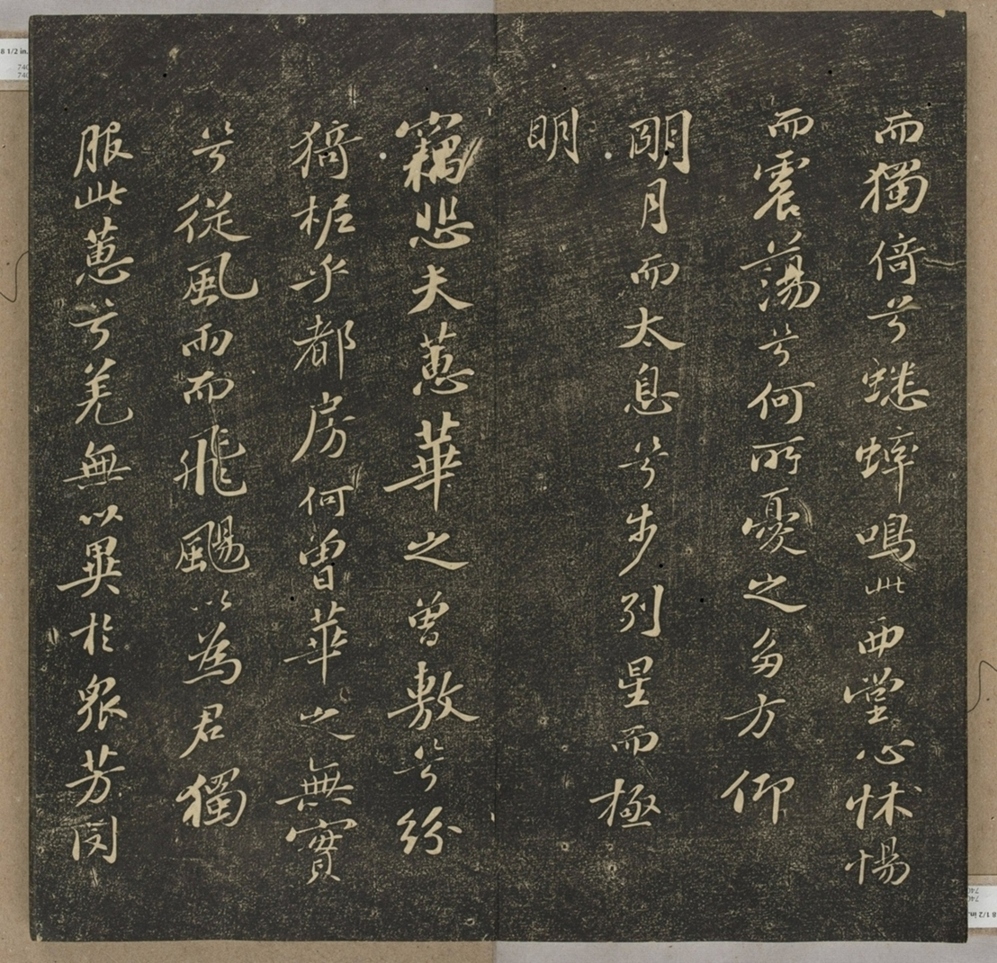 而獨倚兮蟋蟀鳴此西堂心怵惕
而震蕩兮何所憂之多方仰
明月而太息兮步列星而極
明
竊悲夫蕙華之曾敷兮紛
猗柅乎都房何曾華之無實
兮從風雨而飛颺以為君獨
服此蕙兮羌無以異於眾芳閔